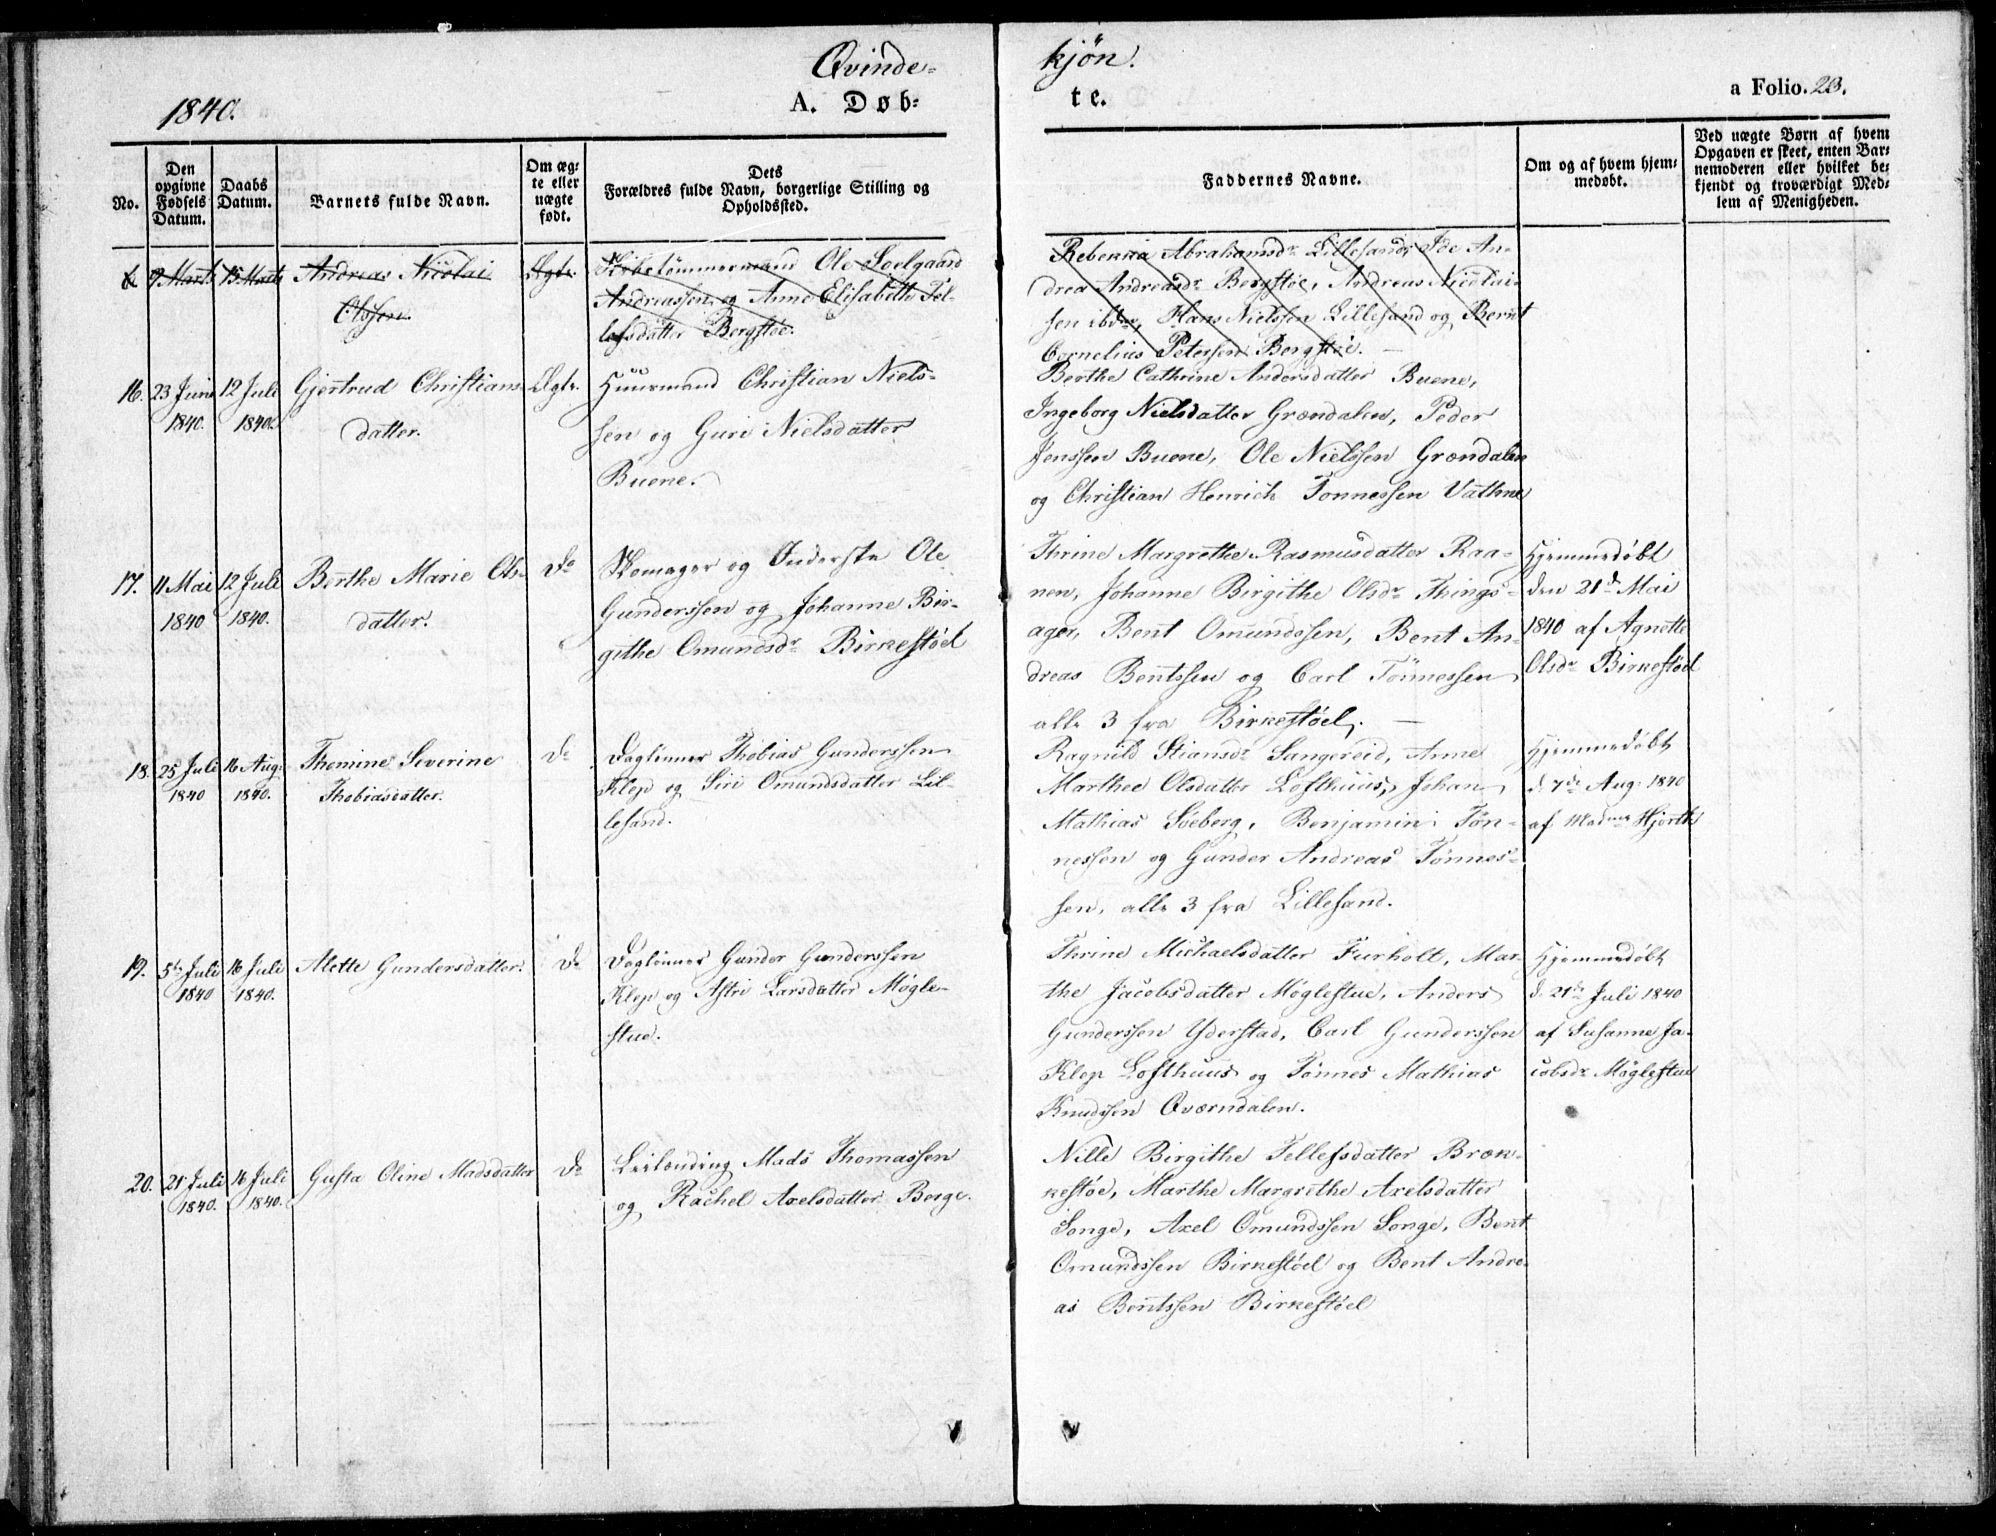 Qvinde-
kjön.
1840.
A. Døb-
te.
a Folio. 23.
No.
Den opgivne Fødsels Datum.
Daabs Datum.
Barnets fulde Navn.
Om ægte eller uægte født.
Dets
Forældres fulde Navn, borgerlige Stilling og
Opholdssted.
Faddernes Navne.
Om og af hvem hjem-
medøbt.
Ved uægte Børn af hvem
Opgaven er skeet, enten Bar-
nemoderen eller hvilket be-
kjendt og troværdigt Med-
lem af Menigheden.
6 9 Marts 15 Marts Andreas Nicolai Ægte Skibstömmermand Ole Soelgaard
Olssen. Andreassen og Anne Elisabeth Tel-
lefsdatter Bergstöe.
Rebekka Abrahamsdr Lillesand, Ide An-
drea Andreasdr Bergstöe, Andreas Nicolai-
sen ibdm, Hans Nielssen Lillesand og Bernt
Cornelius Peterssen Bergstöe.
16. 23 Juni 12 Juli Gjertrud Christians- Ægte. Huusmand Christian Niels-
1840. 1840. datter. sen og Guri Nielsdatter
Buene.
Berthe Cathrine Andersdatter Buene,
Ingeborg Nielsdatter Grændalen, Peder
Jenssen Buene, Ole Nielssen Grændalen
og Christian Henrich Tönnessen Vathne
17. 11 Mai 12 Juli Berthe Marie Ols- Do Skomager og Inderste Ole
1840 1840. datter. Gunderssen og Johanne Bir-
githe Omundsdr Birkestöel
Thrine Margrethe Rasmusdatter Raa-
nen, Johanne Birgithe Olsdr Things-
ager, Bent Omundssen, Bent An-
dreas Bentssen og Carl Tönnessen
alle 3 fra Birkestöel. —
Hjemmedöbt
den 21de Mai
1840 af Agnette
Olsdr Birkestöel
18. 25 Juli 16 Aug: Thomine Severine Do Daglönner Thobias Gunderssen
1840 1840. Thobiasdatter. Klep og Siri Omundsdatter Lil-
lesand.
Ragnild Stiansdr Sangereid, Anne
Marthee Olsdatter Lofthuus, Johan
Mathias Söeberg, Benjamin Tön-
nessen og Gunder Andreas Tönnes-
sen, alle 3 fra Lillesand.
Hjemmedöbt
d. 7de Aug: 1840
af Madme Hjorth
19. 5te Juli 16 Juli Alette Gundersdatter. Do Daglönner Gunder Gunderssen
1840 1840. Klep og Astri Larsdatter Mögle-
stue.
Thrine Michaelsdatter Furholt, Mar-
the Jacobsdatter Möglestue, Anders
Gunderssen Yderstad, Carl Gunderssen
Klep Lofthuus og Tönnes Mathias
Knudssen Qværndalen.
Hjemmedöbt
d. 21de Juli 1840
af Susanne Ja-
cobsdr Möglestue
20. 21 Juli 16 Juli Gusta Oline Madsdatter Do Leilænding Mads Thomassen
1840. 1840. og Rachel Axelsdatter Berge.
Nille Birgithe Tellefsdatter Bræk-
kestöe, Marthe Margrethe Axelsdatter
Songe, Axel Omundssen Songe, Bent
Omundssen Birkestöel og Bent Andre-
as Bentssen Birkestöel